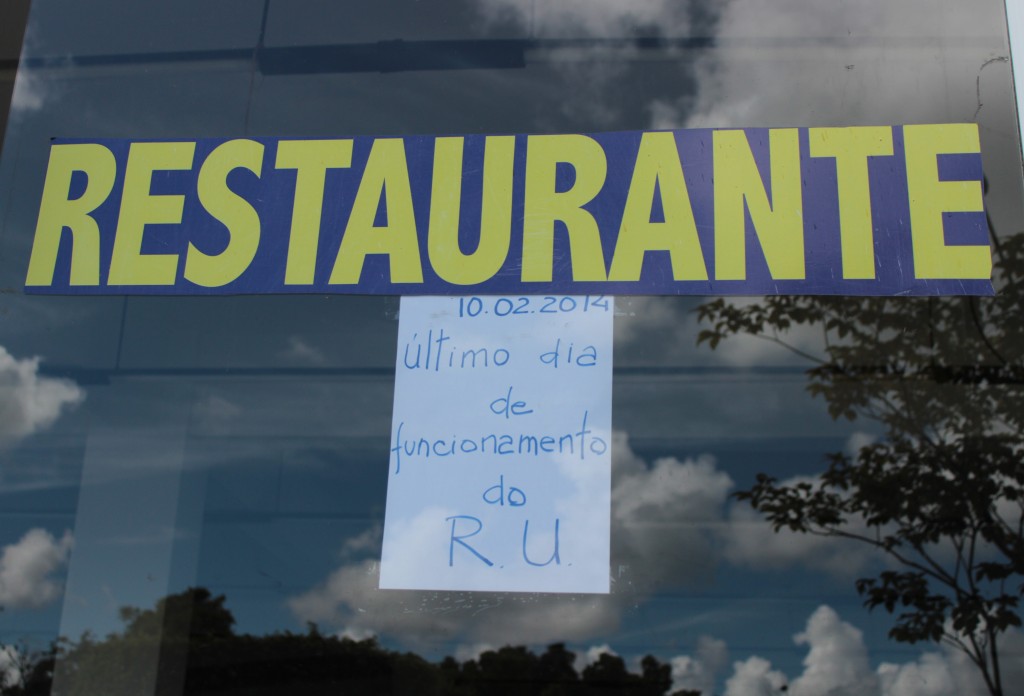 RESTAURANTE
10.02.2014
último dia
de
funcionamento
do
R.U.